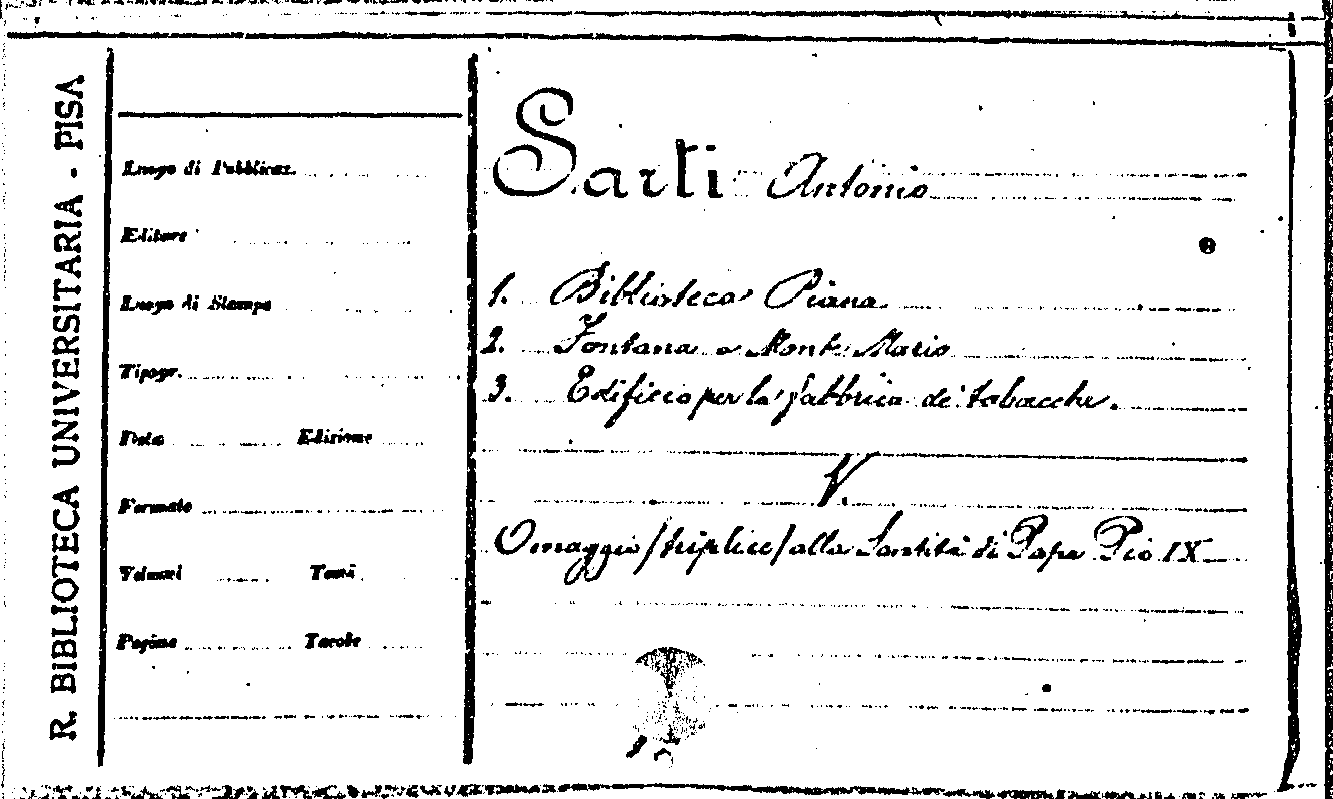 R. BIBLIOTECA UNIVERSITARIA - PISA
Luogo di Pubblicaz.
Editore
Luogo di Stampa
Tipogr.
Data Edizione
Formato
Volumi Tomi
Pagine Tavole
Sarti Antonio
1. Biblioteca Piana
2. Fontana a Monte Mario
3. Edificio per la fabbrica de' tabacchi.
V.
Omaggio (triplice) alla Santità di Papa Pio IX